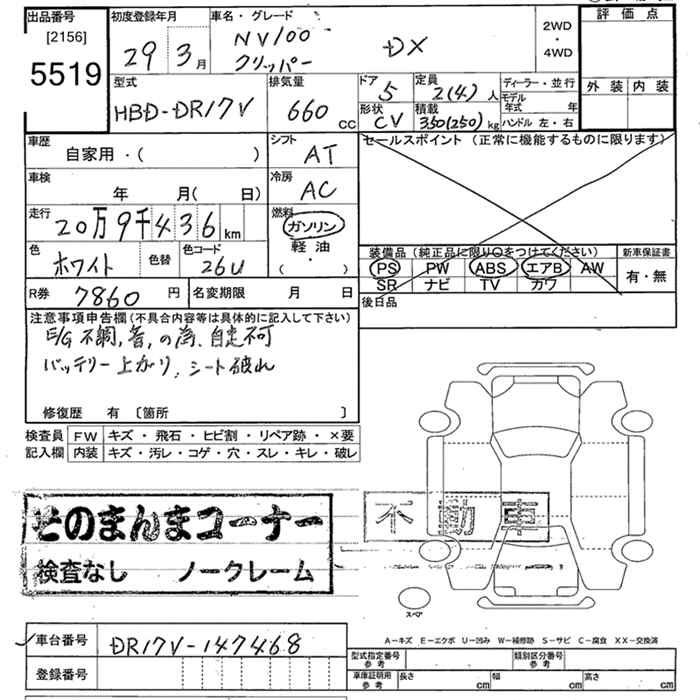 出品番号 [2156] 5519
初度登録年月 29 3月
車名・グレード NV100 クリッパー DX
2WD・4WD
評価点
外装 内装
型式 HBD-DR17V
排気量 660 CC
ドア 5
定員 2(4)人
ディーラー・並行
形状 CV
積載 350(250)kg
モデル年式 年
ハンドル 左・右
車歴 自家用・( )
シフト AT
セールスポイント (正常に機能するものに限ります)
車検 年 月( 日)
冷房 AC
走行 20万9千436km
燃料 ガソリン 軽油 ( ・ )
色 ホワイト
色替
色コード 26U
装備品(純正品に限り○をつけてください)
新車保証書
PS PW ABS エアB AW
有・無
SR ナビ TV カワ
R券 7860円
名変期限 月 日
後日品
注意事項申告欄(不具合内容等は具体的に記入して下さい)
E/G不調,音,の為、自走不可
バッテリー上がり、シート破れ
修復歴 有 〔箇所 〕
検査員 FW キズ・飛石・ヒビ割・リペア跡・×要
記入欄 内装 キズ・汚レ・コゲ・穴・スレ・キレ・破レ
そのまんまコーナー
検査なし ノークレーム
不動車
スペア
車台番号 DR17V-147468
登録番号
A-キズ E-エクボ U-凹み W-補修跡 S-サビ C-腐食 XX-交換済
型式指定番号 参考
類別区分番号 参考
車庫証明用 参考 長さ cm 幅 cm 高さ cm